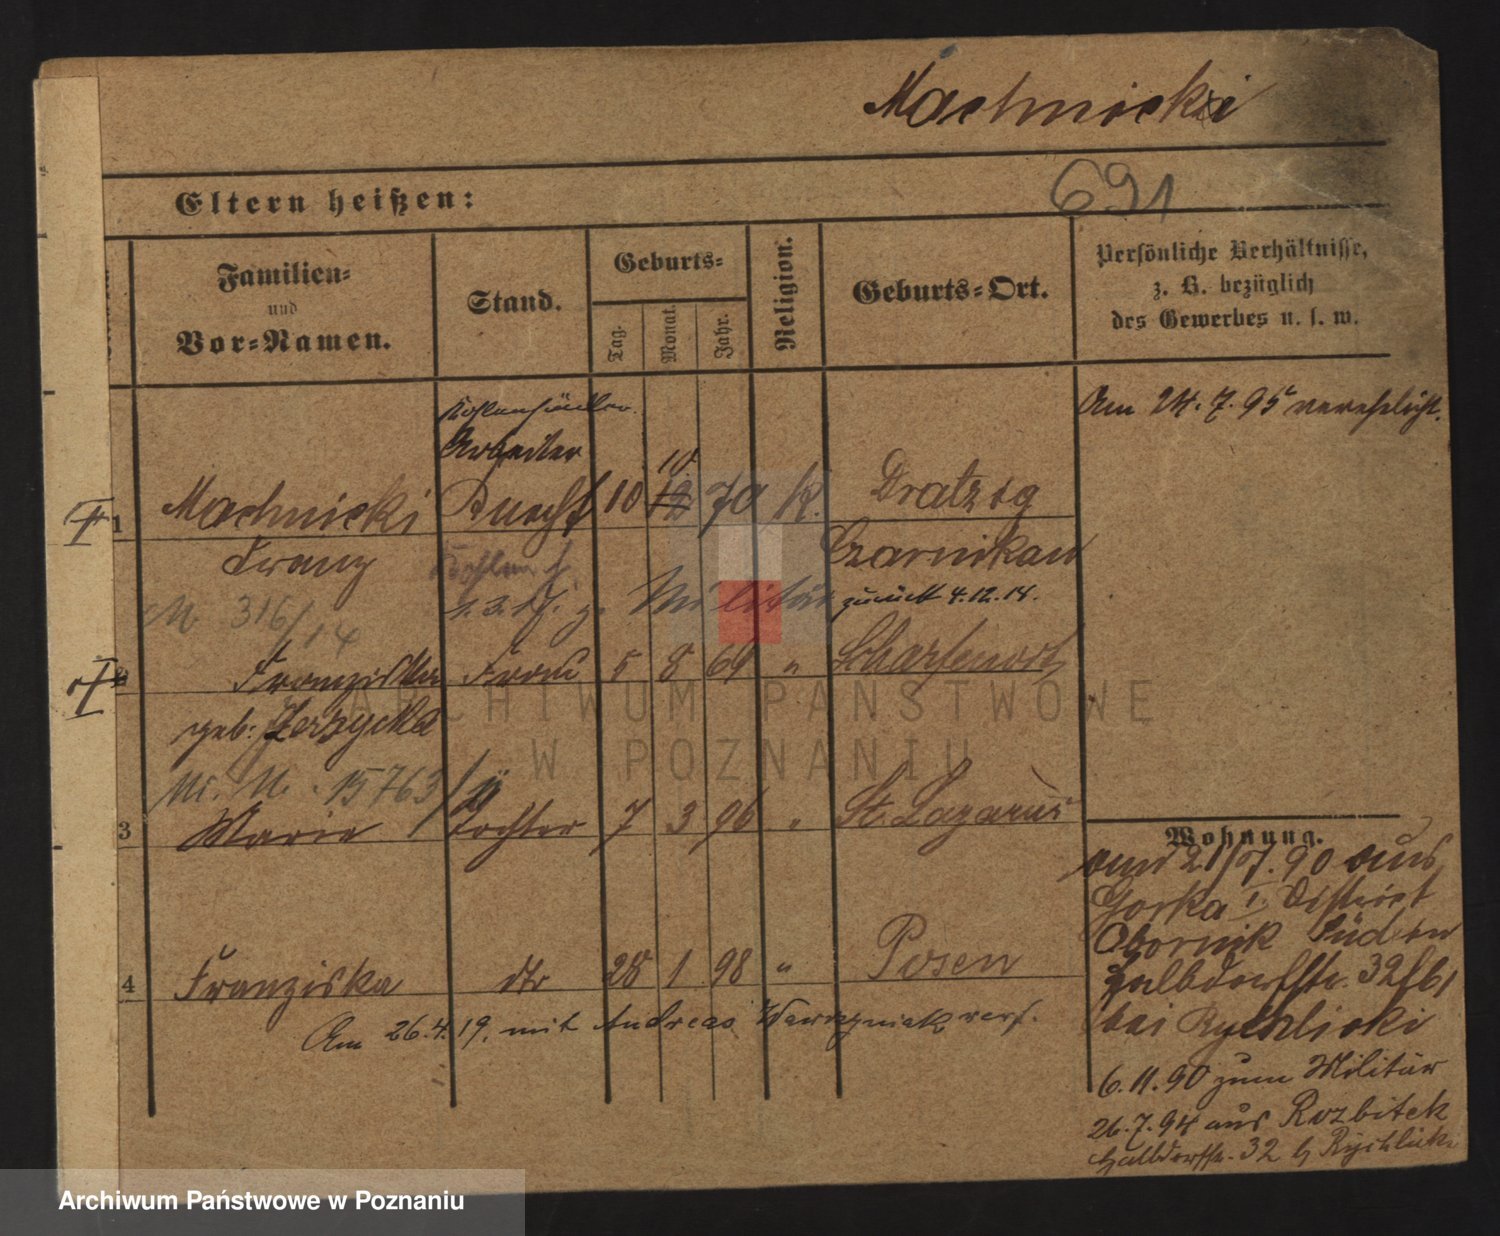 Machnicki
691
Eltern heißen:
Familien- und Vor-Namen.
Stand.
Geburts-
Tag.
Monat.
Jahr.
Religion.
Geburts-Ort.
Persönliche Verhältnisse, z. B. bezüglich des Gewerbes u. s. w.
Am 24. 7. 95 verehelicht.
Kohlenhändler.
Arbeiter
10
1 Machnicki Knecht 10 12 70 K. Dratzig
Franz Czarnikau
M 316/14
1. 3. 17. z. Militär zurück 4.12.14.
2 Franziska Frau 5 8 69 " Scharfenort
geb: Jerzycka
15763/
3 Marie Tochter 7 3 96 " St. Lazarus
4 Franziska dto 28 1 98 " Posen
Am 26.4.19. mit Andreas Wawrzyniak verh.
Wohnung.
21/7. 90 aus
Gorka Distrikt
Obornik
Halbdorfstr. 32
bei Rychlicki
6.11.90 zum Militär
26.7.94 aus Rozbitek
Halbdorfstr. 32 b Rychlicki
ARCHIWUM PAŃSTWOWE
W POZNANIU
Archiwum Państwowe w Poznaniu